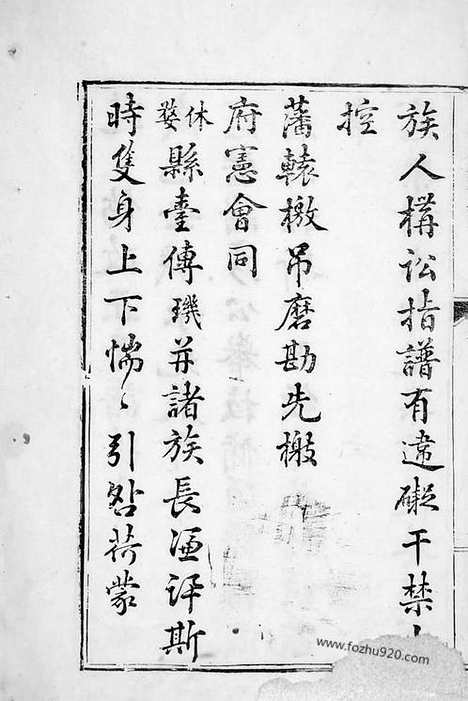 族人構訟指譜有違礙干禁上
控
藩轅檄吊磨勘先檄
府憲會同
休婺縣臺傳璣并諸族長逐評斯
時隻身上下惴々引咎荷蒙
www.fozhu920.com